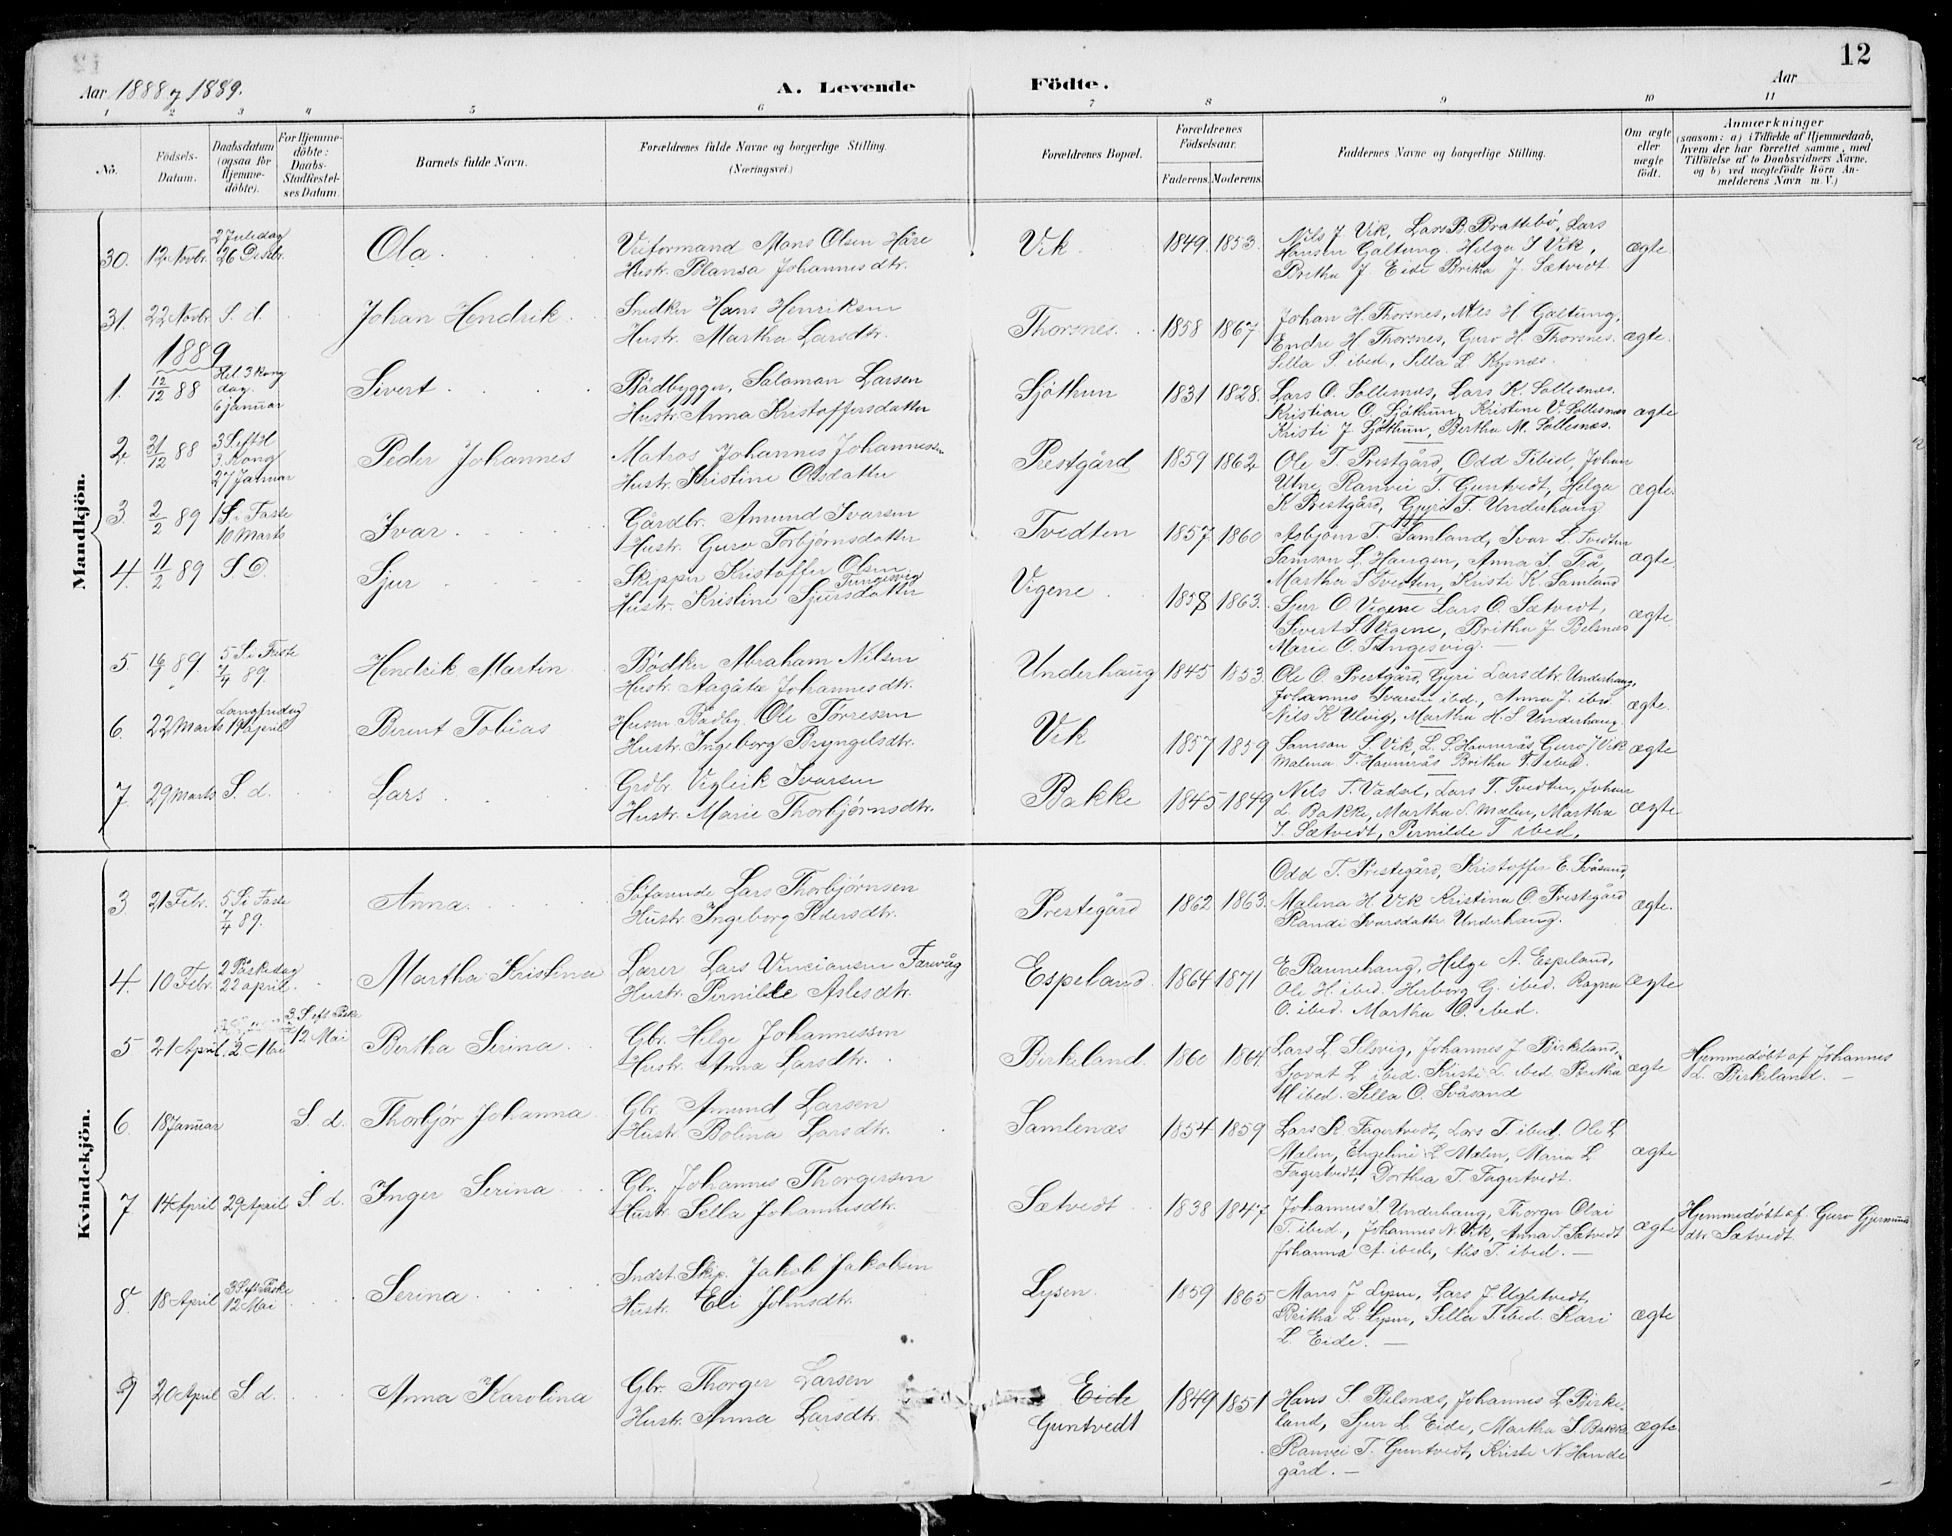 12
Aar 1888 og 1889.
A. Levende Födte.
Aar
1 2 3 4 5 6 7 8 9 10 11
No.
Födsels-Datum.
Daabsdatum (ogsaa for Hjemme-döbte).
For Hjemme-döbte: Daabs-Stadfæstel-ses Datum.
Barnets fulde Navn.
Forældrenes fulde Navne og borgerlige Stilling. (Næringsvei.)
Forældrenes Bopæl.
Forældrenes Födselsaar.
Faderens. Moderens.
Faddernes Navne og borgerlige Stilling.
Om ægte eller uægte födt.
Anmærkninger
(saasom: a) i Tilfælde af Hjemmedaab, hvem der har forrettet samme, med Tilföielse af to Daabsvidners Navne. og b) ved uægtefödte Börn An-melderens Navn m. V.)
Mandkjön.
30. 12 Novbr. 2 Juledag 26 Decbr. Ola
Mons Olsen Håre
Hustr. Johannesdtr.
Vik 1849. 1853.
Nils J Vik, Lars B Brattebö, Lars
Hansen Galtung. Helga J Vik,
Britha J Eide Britha J. Sætvedt.
ægte.
31. 22 Novbr. S. d. Johan Hendrik
Snedker Hans Henriksen
Hustr. Martha Larsdtr.
Thorsnes. 1858 1867
Johan H. Thorsnes, Nils H Galtung,
Endre H. Thorsnes, Guro H. Thorsnes.
Sella S ibed, Sella L
ægte.
1889
1. 12/12 88 Hel. 3 Kong dag. 6 januar Sivert
Bådbygger, Salomon Larsen
Hustr. Anna Kristoffersdatter
Sjöthun 1831 1828.
Lars O. Sollesnæs, Lars K. Sollesnæs.
Kristian O. Sjöthun, Kristine V. Sollesnæs
Kristi J Sjöthun, Bertha M. Sollesnæs.
ægte
2. 31/12 88 3 S eft H 3 Kong 27 Januar Peder Johannes
Matros Johannes Johannessen
Hustr. Kristine Olsdatter
Prestgård 1859 1862
Ole T. Prestgård, Odd T ibed, Johan
Utne, Ranvei T. Guntvedt, Helga
K Prestgård, Gyri T. Underhaug
ægte.
3. 2/2 89 1 S. i Faste 10 Marts Ivar
Gårdbr. Amund Ivarsen
Hustr. Guro Torbjørnsdatter
Tvedten 1857 1860
Asbjørn T. Samland, Ivar S. Tvedten
Samson L. Haugen, Anna S. Trå,
Martha S Tvedten, Kristi K. Samland
ægte
4. 11/2 89 S D. Sjur
Skipper Kristoffer Olsen Tungesvig
Hustr. Kristine Sjursdatter
Vigene 1858 1863.
Sjur O. Vigene Lars O. Sætvedt,
Sivert S. Vigene, Britha J. Belsnæs
Marie O. Tungesvig. —
ægte.
5 16/ 89. 5 S. i Faste 7/4 89. Hendrik Martin
Bødker Abraham Nilsen
Hustr. Aagåta Johannesdtr.
Underhaug 1845 1853.
Ole O. Prestgård, Gyri Larsdtr. Underhaug,
Johannes Ivarsen ibed., Anna J. ibed
Nils K Ulvig, Martha H. S. Underhaug.
ægte.
6. 22 Marts Langfredag 19 april Berent Tobias
Husm. Bådby. Ole Tørresen
Hustr. Ingeborg Bryngelsdtr.
Vik 1857 1859
Samson S. Vik, L. S. Havnerås, Guro J Vik
Malena T. Havnerås Britha T. ibed.
ægte
7. 29 Marts S. d. Lars
Grdbr. Vigleik Ivarsen
Hustr. Marie Thorbjørnsdtr.
Bakke 1845 1849
Nils T. Vadsel, Lars T. Tvedten, Johan
L. Bakke, Martha S. Malen, Martha
J. Sætvedt, Pernilde T ibed,
ægte
Kvindekjön.
3. 21 Febr. 5 S i Faste 7/4 89. Anna
Søfarende Lars Thorbjørnsen
Hustr. Ingeborg Pedersdtr.
Prestegård 1862 1863.
Odd T. Prestegård, Kristoffer E. Svåsand,
Malena H. Vik Kristina O. Prestgård
Randi Ivarsdatter Underhaug.
ægte.
4. 10 Febr. 2 Påskedag 22 april. Martha Kristina
Lærer Lars Færevåg
Hustr. Pernille Aslesdtr.
Espeland. 1864 1871
E Raunehaug, Helge A. Espeland,
Ole H. ibed. Herborg G. ibed. Ragna
O. ibed. Martha O. ibed.
ægte
5 21 April. 2 Mai 3 S eft Påske 12 Mai Bertha Serina
Gbr. Helge Johannessen
Hustr. Anna Larsdtr.
Birkeland. 1860 1864
Lars L. Selsvig, Johannes J. Birkeland,
Sjovat L ibed. Kristi L. ibed. Britha
H ibed. Sella O. Svåsand
ægte
Hjemmedøbt af Johannes
L. Birkeland. —
6. 18 Januar S. d. Thorbjør Johanna
Gbr. Amund Larsen
Hustr. Bolina Larsdtr.
Samlenæs 1854 1859
Lars K Fagertvedt, Lars T. ibed. Ole L
Malen, Engeline L Malen, Maria L
Fagertvedt, Dorthea T. Fagertvedt.
ægte
7. 14 April 29 April S. d. Inger Serina
Gbr. Johannes Thorgersen
Hustr. Sella Johannesdtr.
Sætvedt 1838 1847
Johannes S. Underhaug, Thorger Olai
T. ibed., Johannes N. Vik, Anna S. Sætvedt
Johanna A ibed., Nis T. ibed. —
ægte
Hjemmedøbt af Guro Gjermunds
dtr. Sætvedt.
8. 18 April 3 S eft Påske 12 Mai Serina
Indst. Skip. Jakob Jakobsen
Hustr. Eli Johnsdtr.
Lysen 1859 1865
Mons J Lysen, Lars J Ugletvedt,
Britha L Lysen, Sella T ibed. Kari
L. Eide. —
ægte
9 20 April S d. Anna Karolina
Gbr. Thorger Larsen
Hustr. Anna Larsdtr.
Eide
Guntvedt
1849 1851
Hans S. Belsnæs, Johannes L Birke-
land, Sjur L Eide, Martha S Bakke
Ranvei T. Guntvedt, Kristi N. Hande
gård. —
ægte.